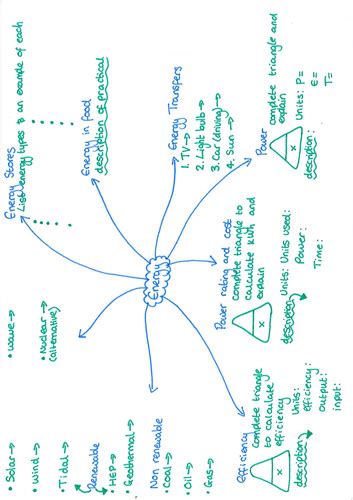 Energy
Energy Stores
List energy types & an example of each
Energy in food
description of practical
Energy Transfers
1. TV →
2. Light bulb →
3. Car (driving) →
4. Sun →
Power
complete triangle and
explain
x
description:
Units: P=
E=
T=
Power rating and cost
complete triangle to
calculate kWh and
explain
x
description
Units: Units used:
Power:
Time:
Efficiency
complete triangle
to calculate
efficiency
x
description
Units:
efficiency:
output:
input:
Non renewable
• Coal →
• Oil →
• Gas →
Renewable
• Solar →
• Wind →
• Tidal →
• HEP →
• Geothermal →
• Wave →
• Nuclear →
(alternative)